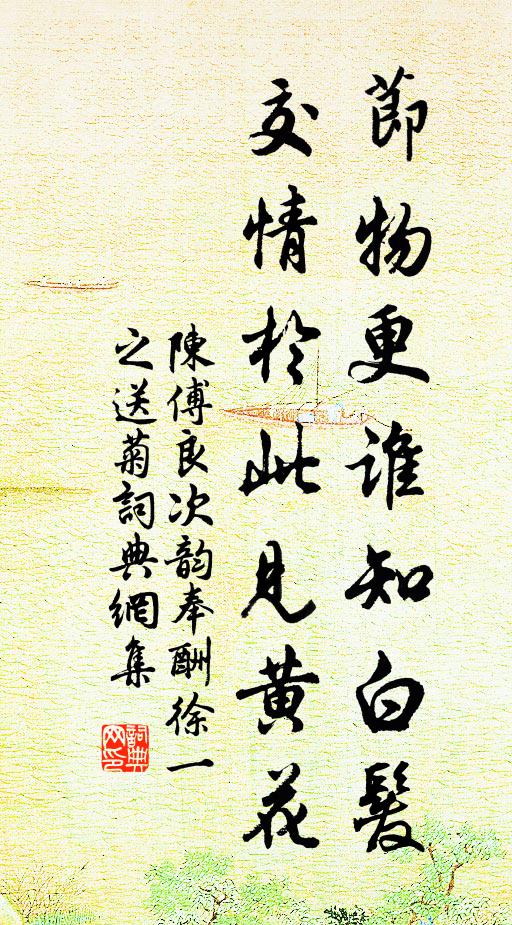 節物更誰知白髮
交情於此見黃花
陳傅良次韵奉酬徐一
之送菊詞典網集
詞典网印